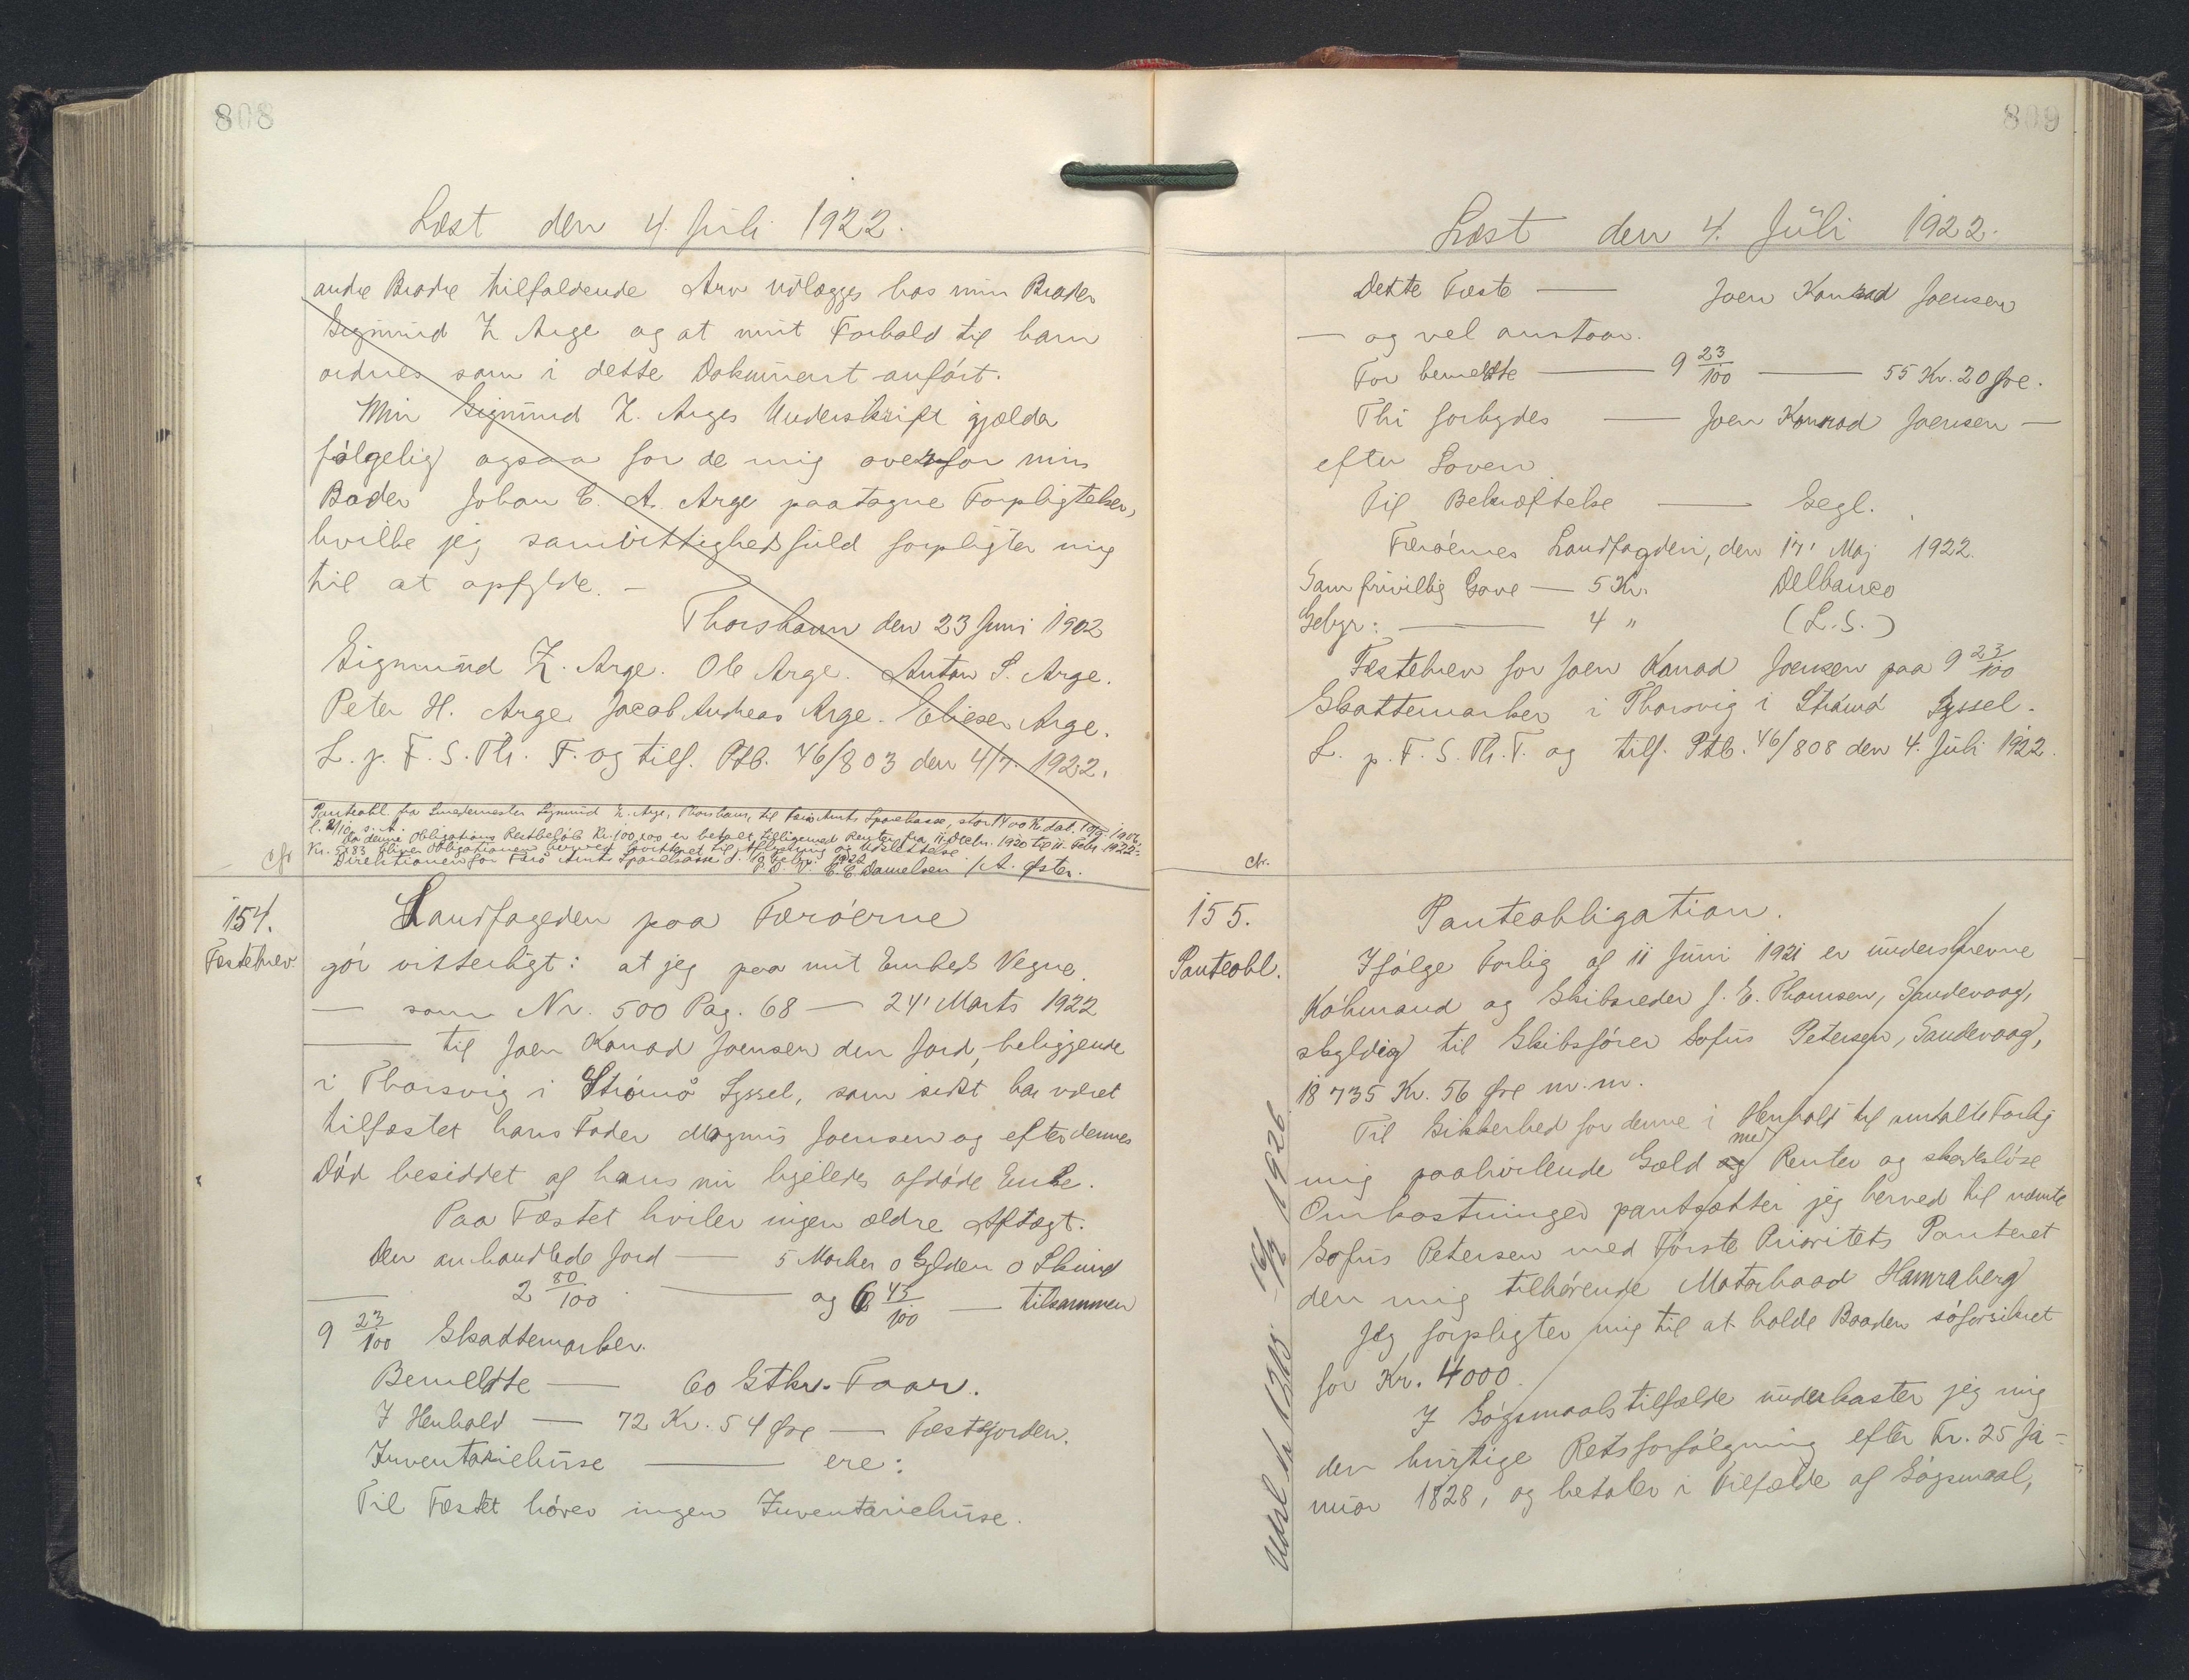 808
Læst den 4. Juli 1922.
andre Brødre tilfaldende Arv udlægges hos min Broder
Sigmund Z Arge og at mit Forhold til ham
ordnes som i dette Dokument anført.
Min Sigmund Z. Arges Underskrift gjælder
følgelig ogsaa for de mig overfor min
Broder Johan C. A. Arge paatagne Forpligtelser,
hvilke jeg samvittighedsfuld forpligter mig
til at opfylde. –
Thorshavn den 23 Juni 1902
Sigmund Z. Arge. Ole Arge. Anton S. Arge.
Peter H. Arge. Jacob Andreas Arge. Elieser Arge.
L. p. F. S. Th. T. og tilf. Ptb. 46/803 den 4/7. 1922.
Panteobl. fra Smedemester Sigmund Z. Arge, Thorshavn, til Færø Amts Sparekasse, stor 1400 Kr. dat.
l. 2/10 s. A.
Da denne Obligations Restbeløb Kr. 100,00 er betalt tilligemed Renter fra 11 Decbr. 1920 til 11. Febr. 1922 =
Kr. 5,83 bliver Obligationen herved kvitteret til Aflysning og Udslettelse.
Direktionen for Færø Amts Sparekasse d. 1922
P. D. V. E. C. Danielsen / A. Øster.
cfr
154.
Fæstebrev.
Landfogeden paa Færøerne
gør vitterligt: at jeg paa mit Embeds Vegne
— som Nr. 500 Pag. 68 — 24' Marts 1922
— til Joen Konrad Joensen den Jord, beliggende
i Thorsvig i Strømø Syssel, som sidst har været
tilfæstet hans Fader Magnus Joensen og efter dennes
Død besiddet af hans nu ligeledes afdøde Enke.
Paa Fæstet hviler ingen ældre Aftægt.
Den anhandlede Jord — 5 Marker 0 Gylden 0 Skind
— 2 80/100 — og 6 43/100 — tilsammen
9 23/100 Skattemarker.
Bemeldte — 60 Stkr. Faar.
I Henhold — 72 Kr. 54 Øre — Fæstejorden.
Inventariehuse — ere:
Til Fæstet hører ingen Inventariehuse.
809
Læst den 4. Juli 1922.
Dette Fæste — Joen Konrad Joensen
— og vel anstaar.
For bemeldte — 9 23/100 — 55 Kr. 20 Øre.
Thi forbydes — Joen Konrad Joensen —
efter Loven
Til Bekræftelse — Segl.
Færøernes Landfogderi, den 17' Maj 1922.
Som frivillig Gave — 5 Kr. Delbanco
Gebyr: — 4 " (L.S.)
Fæstebrev for Joen Konrad Joensen paa 9 23/100
Skattemarker i Thorsvig i Strømø Syssel.
L. p. F. S. Th. T. og tilf. Ptb. 46/808 den 4. Juli 1922.
cfr.
155.
Panteobl.
Panteobligation.
Ifølge Forlig af 11 Juni 1921 er underskrevne
Købmand og Skibsreder J. E. Thomsen, Sandevaag,
skyldig til Skibsfører Sofus Petersen, Sandevaag,
18 735 Kr. 56 Øre m. m.
Til Sikkerhed for denne i Henhold til omtalte Forlig
mig paahvilende Gæld og med Renter og skadesløse
Omkostninger pantsætter jeg herved til nævnte
Sofus Petersen med Første Prioritets Panteret
den mig tilhørende Motorbaad Hamraberg
Jeg forpligter mig til at holde Baaden søforsikret
for Kr. 4000.
I Søgsmaalstilfælde underkaster jeg mig
den hurtige Retsforfølgning efter Fr. 25 Ja-
nuar 1828, og betaler i Tilfælde af Søgsmaal,
Udsl. 1926